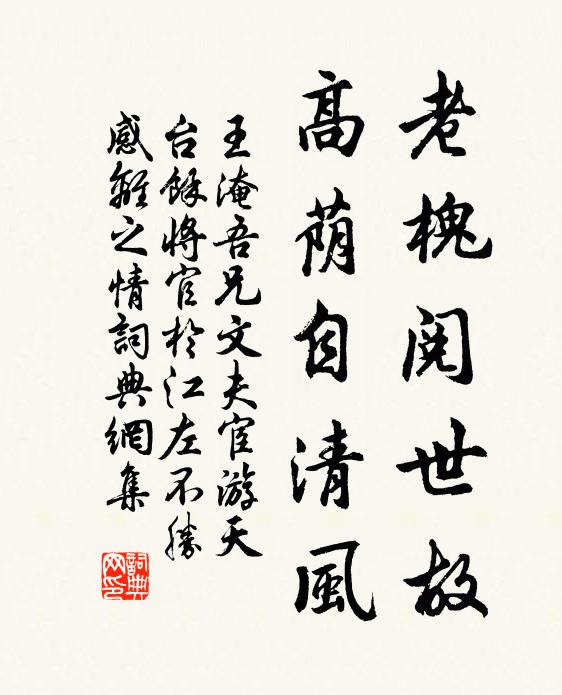 老槐閱世故
高蔭自清風
王淹吾兄文夫宦游天
台餘將官於江左不勝
感離之情詞典網集
詞典
网印